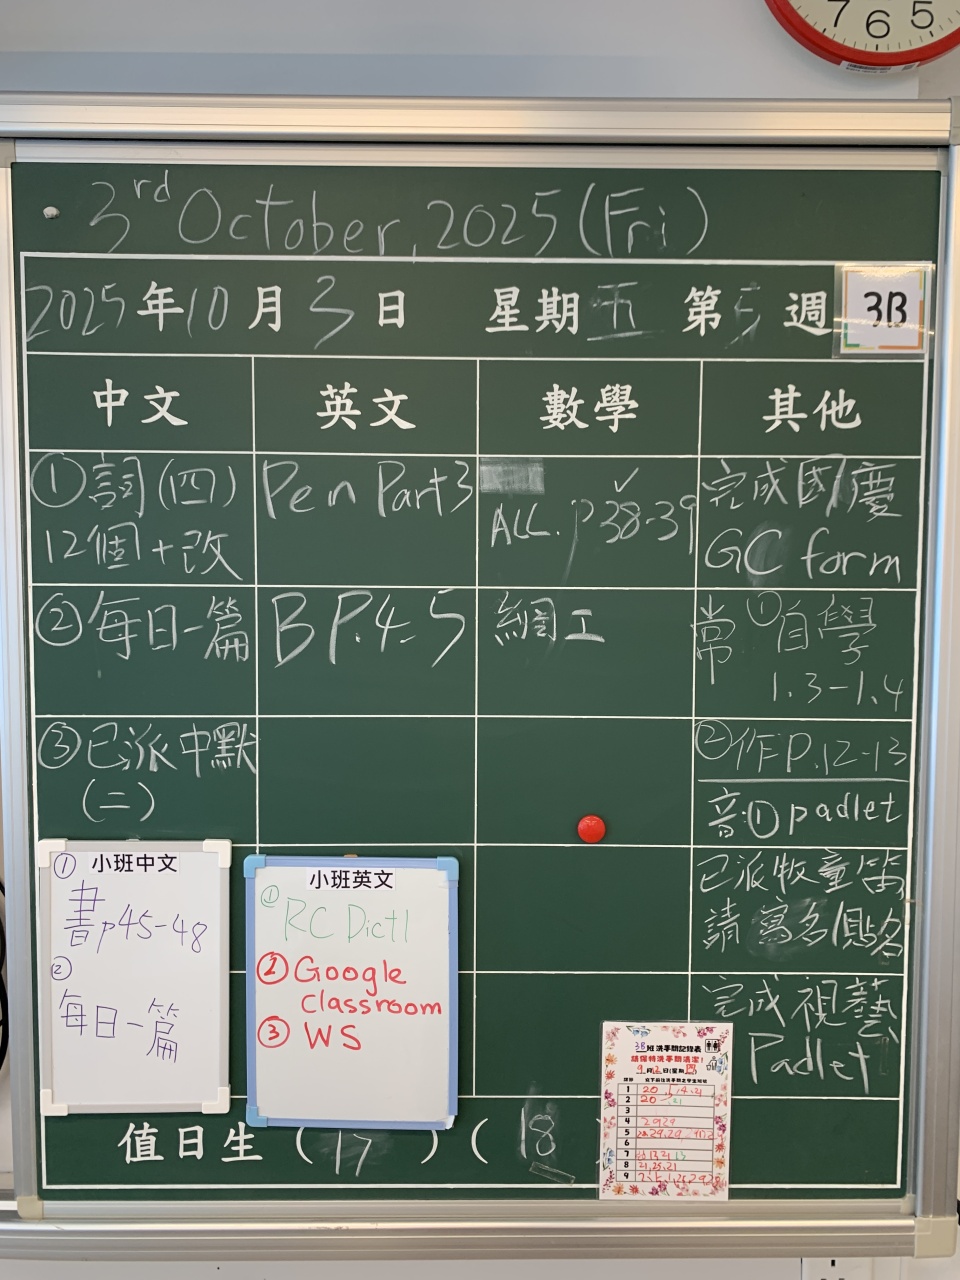 7 6 5
3rd October, 2025 (Fri)
2025年10月3日 星期五 第5週 3B
中文 英文 數學 其他
①詞(四)
12個+改
②每日一篇
③已派中默
(二)
Pen Part 3
B P.4-5
ALL. p38-39
網工
完成國慶
GC form
常 ①自學
1.3-1.4
②作P.12-13
音①padlet
已派牧童笛
請寫名/貼名
完成視藝
Padlet
小班中文
①
書p45-48
②
每日一篇
小班英文
① RC Dict1
② Google
classroom
③ WS
值日生 (17) (18
3B班洗手間記錄表
請保持洗手間清潔!
1 20
2 20
3
4 29 29
5
6
7
8 21,25,21
9